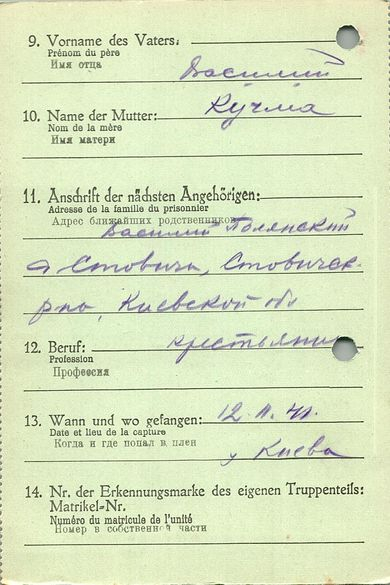 9. Vorname des Vaters:
Prénom du père
Имя отца
Василий
10. Name der Mutter:
Nom de la mère
Имя матери
Кучма
11. Anschrift der nächsten Angehörigen:
Adresse de la famille du prisonnier
Адрес ближайших родственников
Василий Полянский
Стовичи, Стовичск.
р-на, Киевской обл
12. Beruf:
Profession
Профессия
крестьянин
13. Wann und wo gefangen:
Date et lieu de la capture
Когда и где попал в плен
у Киева
14. Nr. der Erkennungsmarke des eigenen Truppenteils:
Matrikel-Nr.
Numéro du matricule de l'unité
Номер в собственной части